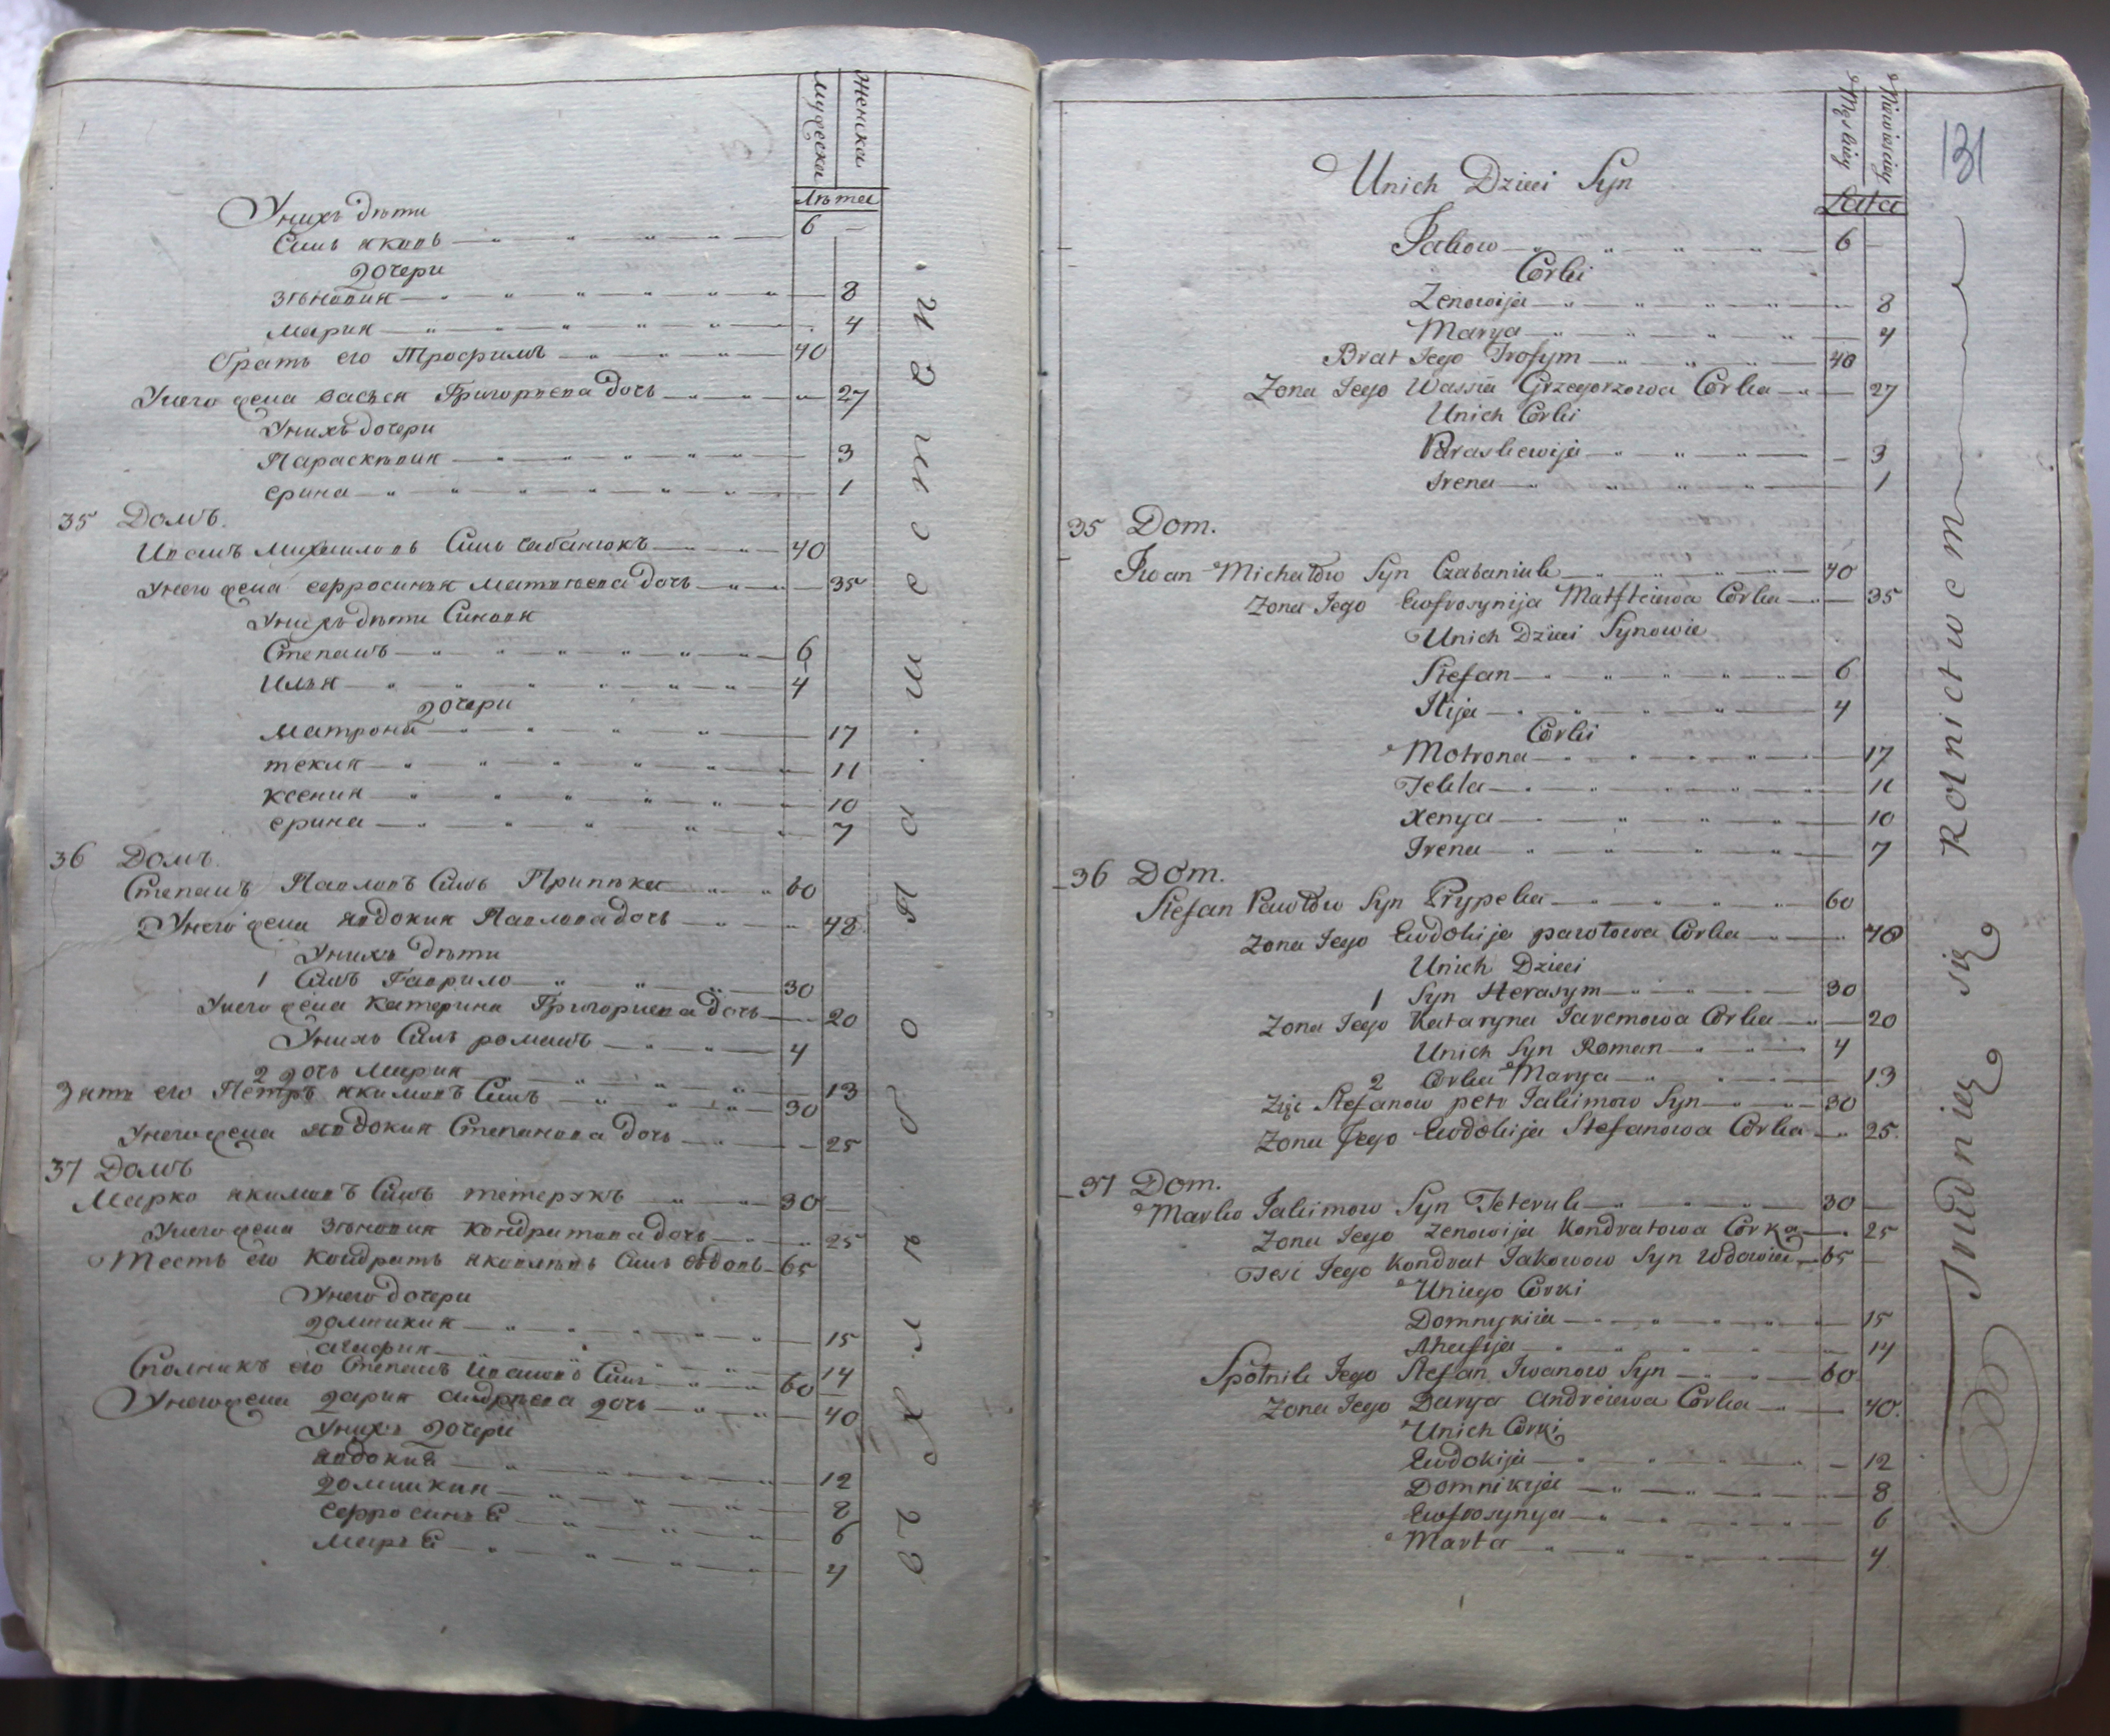 мужеска
женска
Лѣта
Унихъ дѣти
Синъ яковъ 6 —
дочери
зѣновия 8
мария 4
братъ его Трофимъ 40
Унего жена васъся Григориева дочъ 27
Унихъ дочери
Параскѣвия 3
ерина 1
35 Домъ
Иванъ Михайловъ Синъ чабанюкъ 40
Унего жена ефросиния Матвѣева дочъ 35
Унихъ дѣти Синовя
Степанъ 6
Илъя 4
дочери
матрона 17
текля 11
ксения 10
ерина 7
36 Домъ
Степанъ Павловъ Синъ Припѣка 60
Унего жена явдокия Павлова дочъ 48
Унихъ дѣти
1 Синъ Гаврило 30
Унего жена катерина Григориева дочъ 20
Унихъ Синъ романъ 4
2 дочъ Мария 13
Зять его Петръ якимовъ Синъ 30
Унего жена явдокия Степанова дочъ 25
37 Домъ
Марко якимовъ Синъ тетерукъ 30
Унего жена зѣновия кондратова дочъ 25
Тесть его кондратъ яковлѣвъ Синъ вдовъ 65
Унего дочери
домникия 15
агафия 14
Сполникъ его Степанъ ивановъ Синъ 60
Унего жена дария андрѣева дочъ 40
Унихъ дочери
явдокиа 12
домникия 8
ефросинъа 6
маръа 4
хлѣбопашествомъ
131
Męskiey
Niewieściey
Lata
Unich Dzieci Syn
Jakow 6
Corki
Zenowija 8
Marya 4
Brat Jego Trofym 40
Zona Jego Wassia Grzegorzowa Corka 27
Unich Corki
Paraskewija 3
Irena 1
35 Dom.
Iwan Michałow Syn Czabaniuk 40
Zona Jego Ewfrosynija Matfteiewa Corka 35
Unich Dzieci Synowie
Stefan 6
Ilija 4
Corki
Motrona 17
Tekla 11
Xenya 10
Irena 7
36 Dom.
Stefan Pawłow Syn Prypeka 60
Zona Jego Ewdokija pawłowa Corka 48
Unich Dzieci
1 Syn Herasym 30
Zona Jego Kataryna Jaremowa Corka 20
Unich Syn Roman 4
2 Corka Marya 13
Zięc Stefanow petr Jakimow Syn 30
Zona Jego Ewdokija Stefanowa Corka 25.
37 Dom.
Marko Jakimow Syn Teteruk 30
Zona Jego Zenowija Kondratowa Corka 25
Tesc Jego Kondrat Jakowow Syn Wdowiec 65
Uniego Corki
Domnykiia 15
Ahafija 14
Społnik Jego Stefan Iwanow Syn 60
Zona Jego Darya Andreiewa Corka 40.
Unich Corki
Ewdokija 12
Domnikija 8
Ewfrosynya 6
Marta 4
Trudnią się Rolnictwem